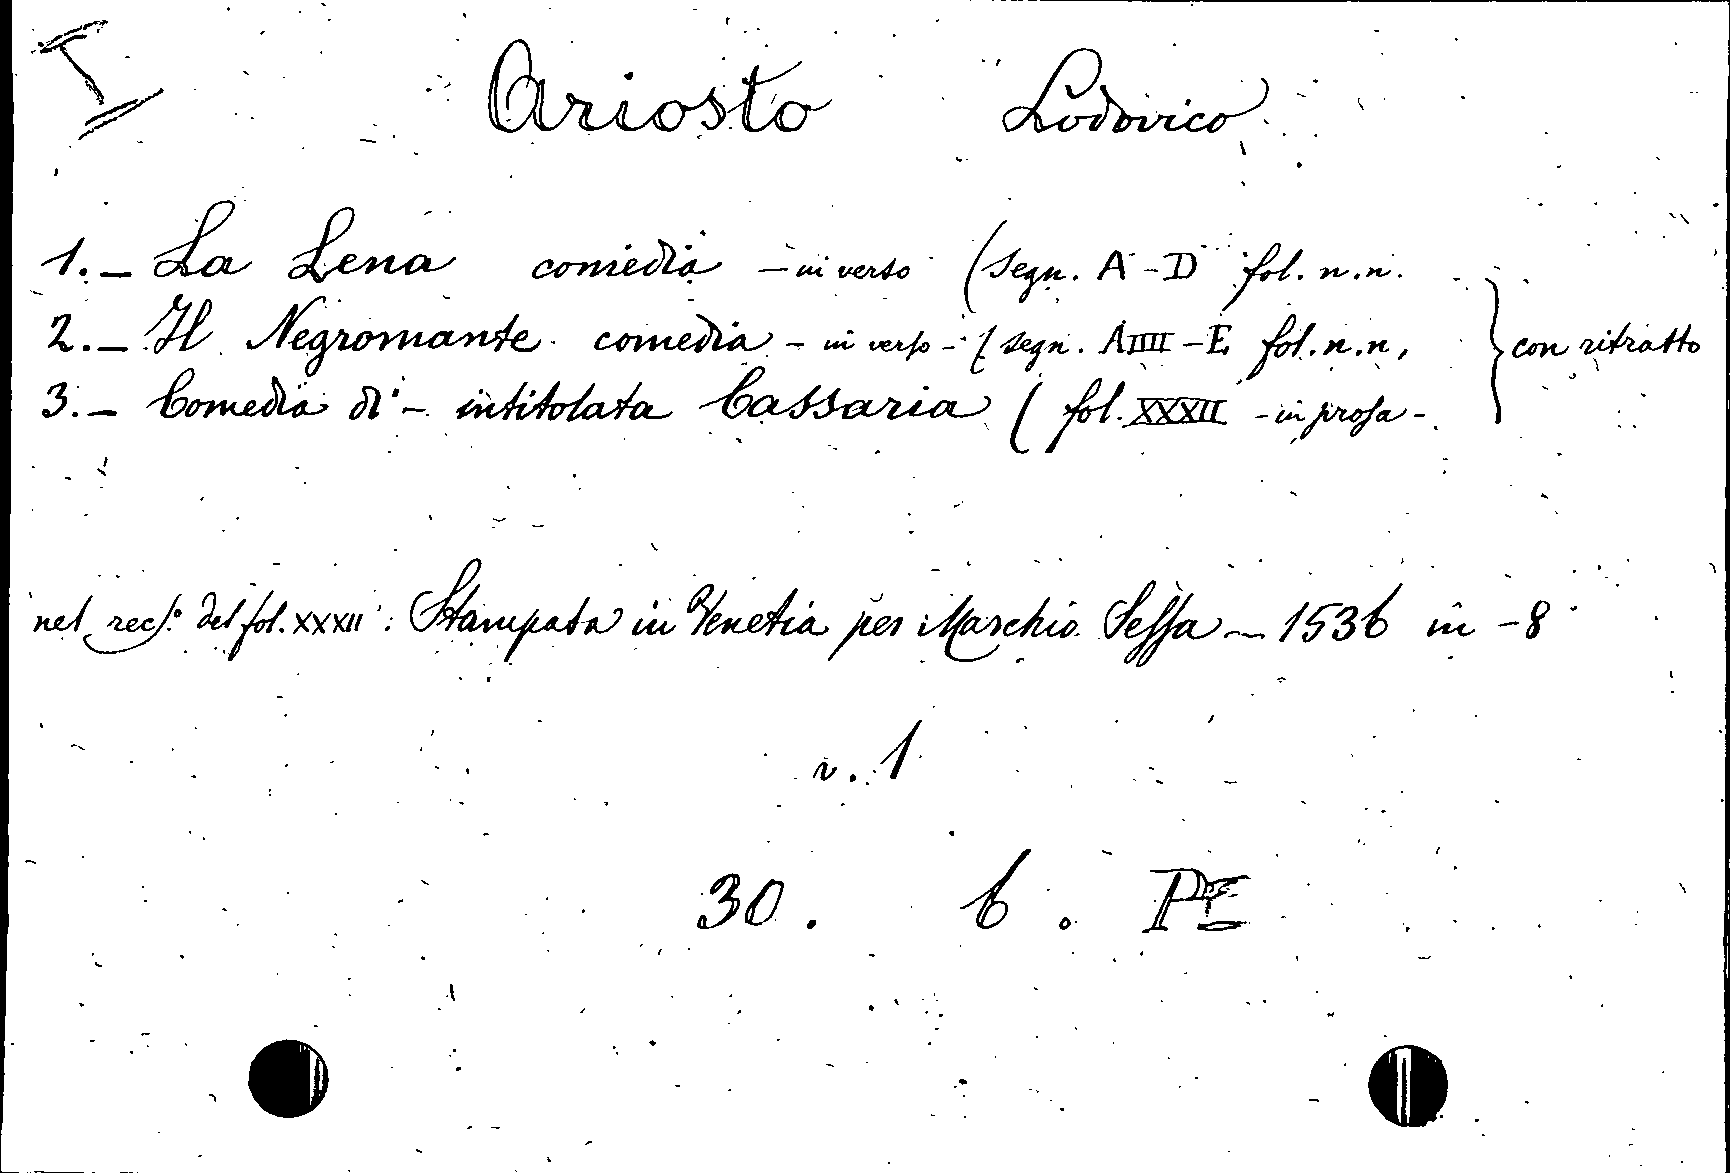 I
Ariosto Lodovico
1. – La Lena comedia – in verso (segn. A – D fol. n.n.
2. – Il Negromante comedia – in verso – ( segn. AIIII – E fol. n.n,
3. – Comedia di – intitolata Cassaria ( fol. XXXII – in prosa –
} con ritratto
nel rect.º del fol. XXXII : Stampata in Venetia per Marchio Sessa – 1536 in – 8
v. 1
30. 6. PE